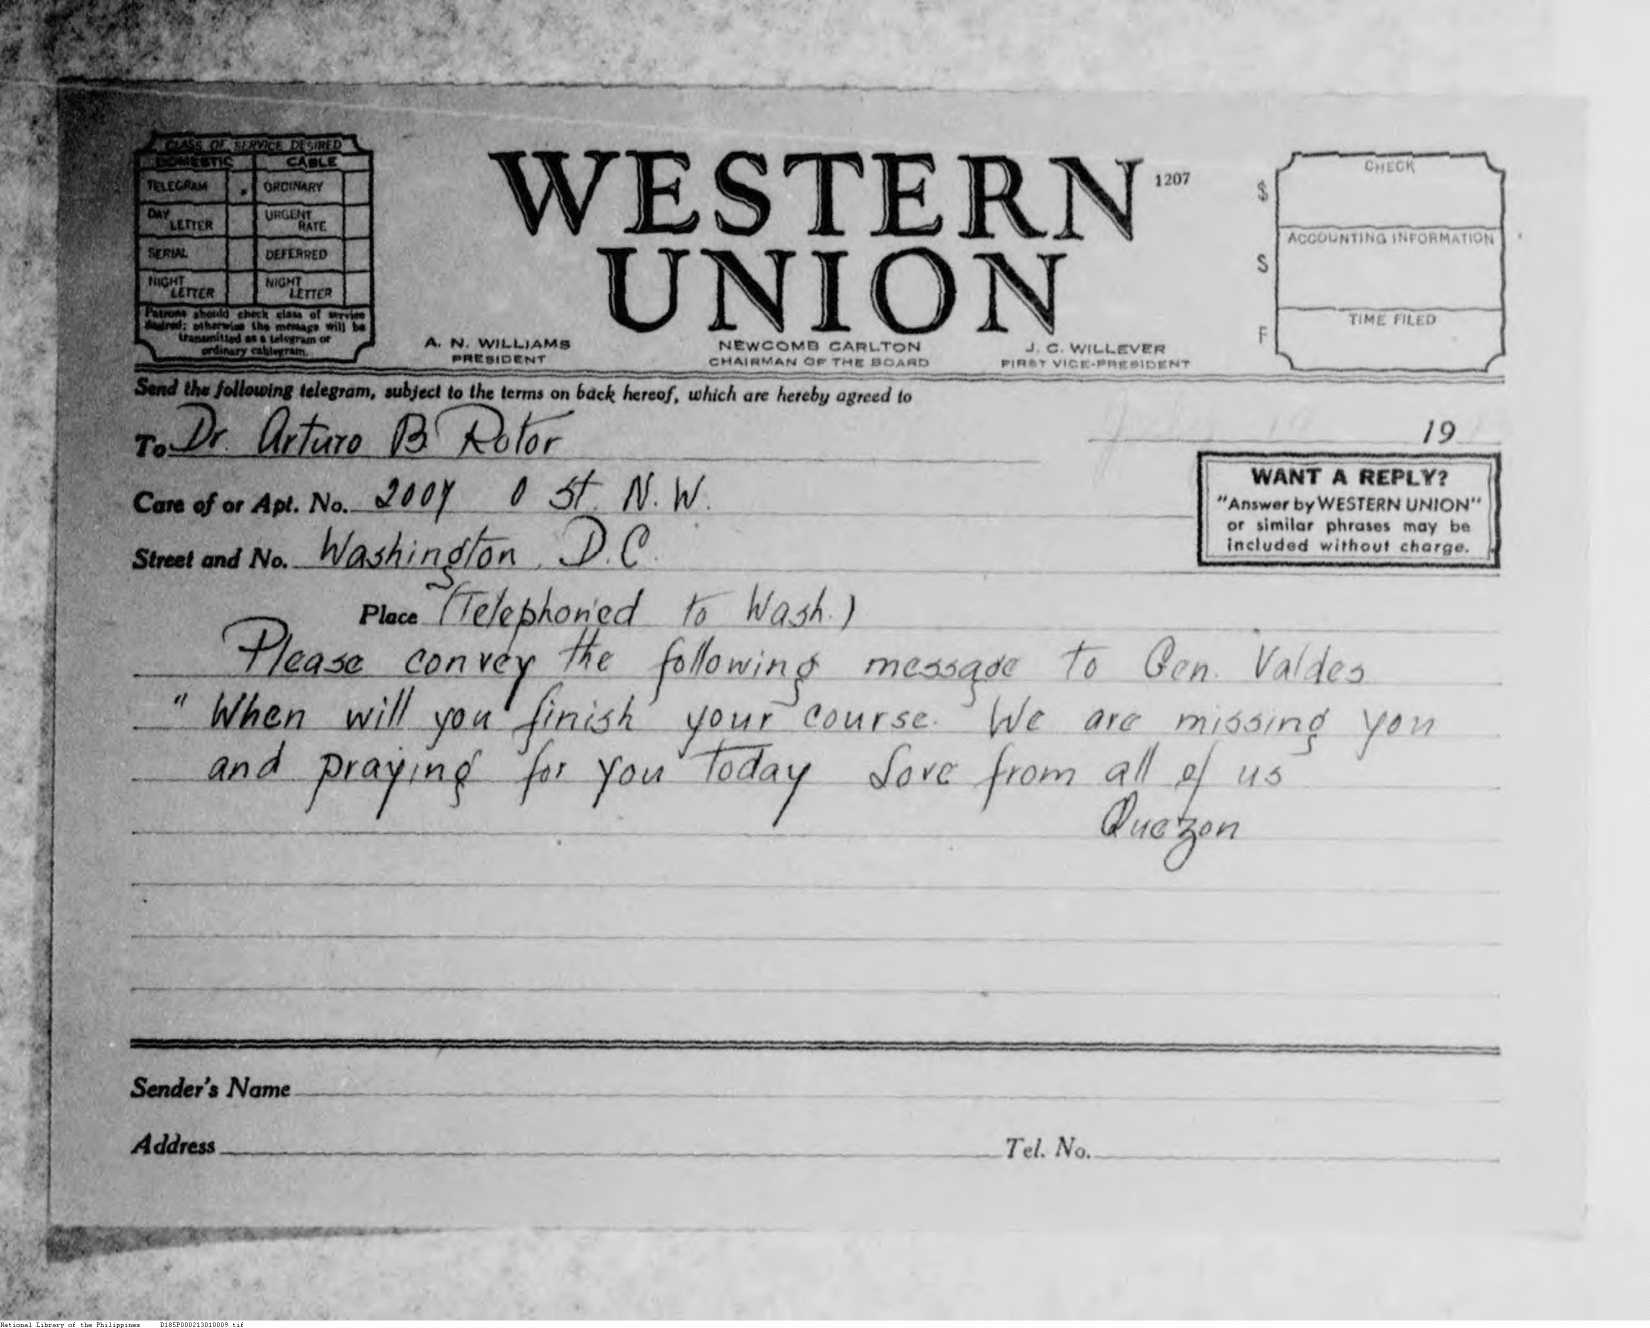 CLASS OF SERVICE DESIRED
DOMESTIC CABLE
TELEGRAM ORDINARY
DAY LETTER URGENT RATE
SERIAL DEFERRED
NIGHT LETTER NIGHT LETTER
Patrons should check class of service
desired; otherwise the message will be
transmitted as a telegram or
ordinary cablegram.
WESTERN
UNION
1207
A. N. WILLIAMS
PRESIDENT
NEWCOMB CARLTON
CHAIRMAN OF THE BOARD
J. C. WILLEVER
FIRST VICE-PRESIDENT
$
S
F
CHECK
ACCOUNTING INFORMATION
TIME FILED
Send the following telegram, subject to the terms on back hereof, which are hereby agreed to
19
To Dr. Arturo B Rotor
Care of or Apt. No. 2007 O St. N.W.
Street and No. Washington, D.C.
WANT A REPLY?
"Answer by WESTERN UNION"
or similar phrases may be
included without charge.
Place (Telephoned to Wash.)
Please convey the following message to Gen. Valdes
"When will you finish your course. We are missing you
and praying for you today Love from all of us
Quezon
Sender's Name
Address Tel. No.
National Library of the Philippines D185P000213010009.tif